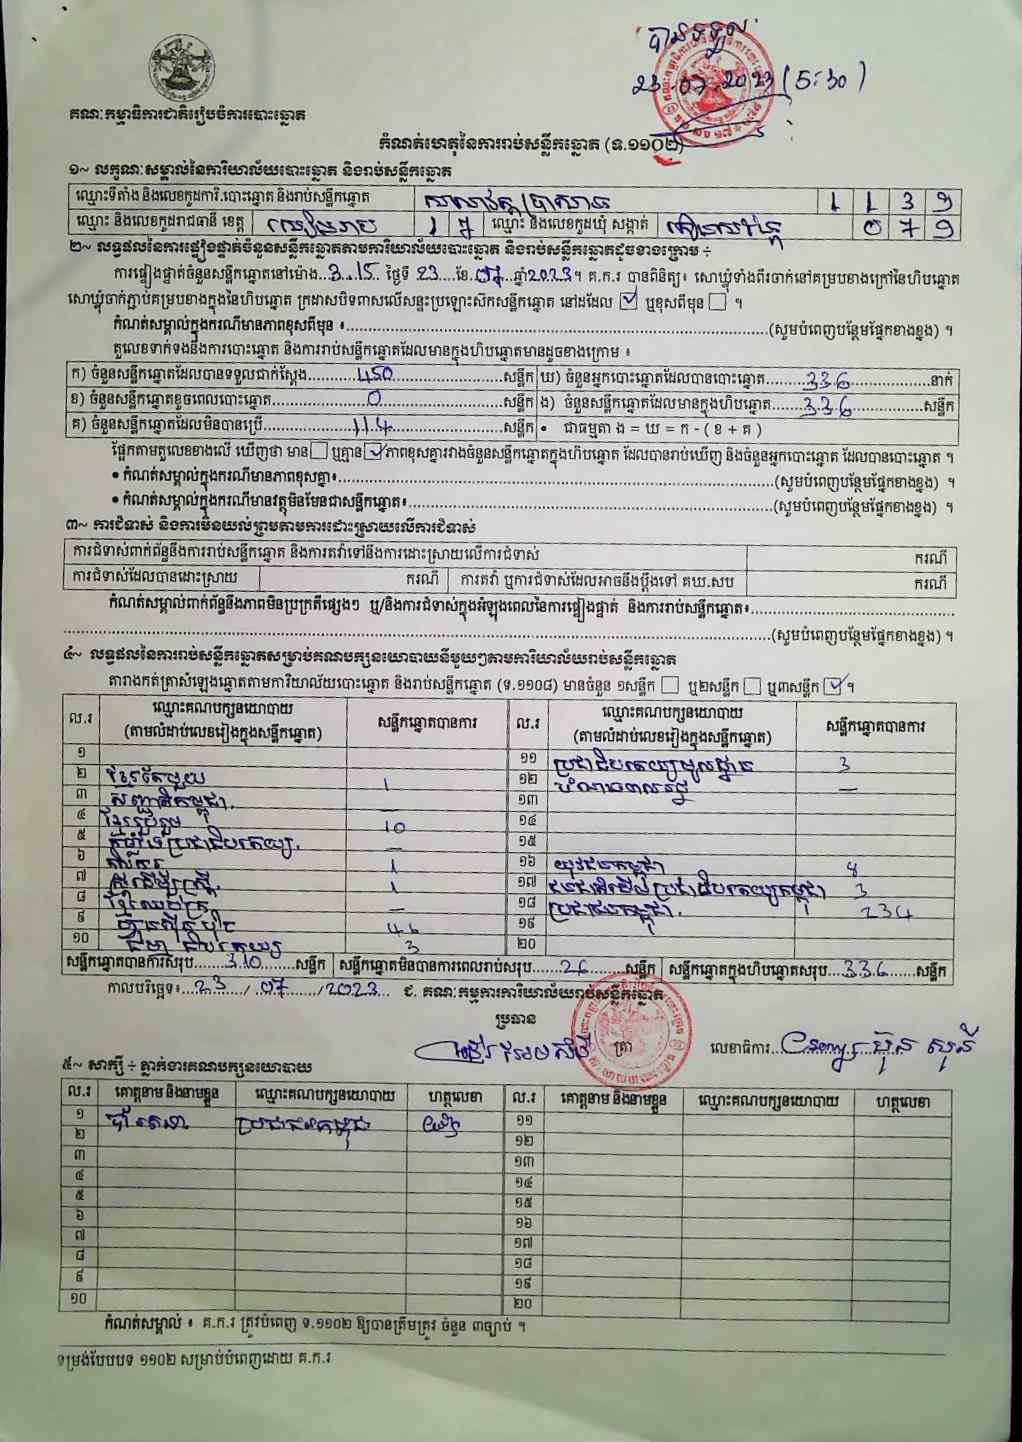 បានទទួល
23.07.2023 (5:30)
គណៈកម្មាធិការជាតិរៀបចំការបោះឆ្នោត
កំណត់ហេតុនៃការរាប់សន្លឹកឆ្នោត (ទ.១១០២)
១~ លក្ខណៈសម្គាល់នៃការិយាល័យបោះឆ្នោត និងរាប់សន្លឹកឆ្នោត
ឈ្មោះទីតាំង និងលេខកូដការិ.បោះឆ្នោត និងរាប់សន្លឹកឆ្នោត 1 1 3 9
ឈ្មោះ និងលេខកូដរាជធានី ខេត្ត សៀមរាប 1 7 ឈ្មោះ និងលេខកូដឃុំ សង្កាត់ 0 7 9
២~ លទ្ធផលនៃការផ្ទៀងផ្ទាត់ចំនួនសន្លឹកឆ្នោតតាមការិយាល័យបោះឆ្នោត និងរាប់សន្លឹកឆ្នោតដូចខាងក្រោម ÷
ការផ្ទៀងផ្ទាត់ចំនួនសន្លឹកឆ្នោតនៅម៉ោង..3.15. ថ្ងៃទី 23...ខែ.07. ឆ្នាំ2023។ គ.ក.រ បានពិនិត្យ៖ សោឃ្លុំទាំងពីរចាក់នៅគម្របខាងក្រៅនៃហិបឆ្នោត
សោឃ្លុំចាក់ភ្ជាប់គម្របខាងក្នុងនៃហិបឆ្នោត ក្រដាសបិទពាសលើសន្ទះប្រឡោះស៊កសន្លឹកឆ្នោត នៅដដែល ☑ ឬខុសពីមុន ☐ ។
កំណត់សម្គាល់ក្នុងករណីមានភាពខុសពីមុន ៖......(សូមបំពេញបន្ថែមផ្នែកខាងខ្នង) ។
តួលេខទាក់ទងនឹងការបោះឆ្នោត និងការរាប់សន្លឹកឆ្នោតដែលមានក្នុងហិបឆ្នោតមានដូចខាងក្រោម ៖
ក) ចំនួនសន្លឹកឆ្នោតដែលបានទទួលជាក់ស្តែង......450......សន្លឹក ឃ) ចំនួនអ្នកបោះឆ្នោតដែលបានបោះឆ្នោត......336......នាក់
ខ) ចំនួនសន្លឹកឆ្នោតខូចពេលបោះឆ្នោត......0......សន្លឹក ង) ចំនួនសន្លឹកឆ្នោតដែលមានក្នុងហិបឆ្នោត......336......សន្លឹក
គ) ចំនួនសន្លឹកឆ្នោតដែលមិនបានប្រើ......114......សន្លឹក • ជាធម្មតា ង = ឃ = ក - ( ខ + គ )
ផ្អែកតាមតួលេខខាងលើ ឃើញថា មាន ☐ ឬគ្មាន ☑ ភាពខុសគ្នារវាងចំនួនសន្លឹកឆ្នោតក្នុងហិបឆ្នោត ដែលបានរាប់ឃើញ និងចំនួនអ្នកបោះឆ្នោត ដែលបានបោះឆ្នោត ។
• កំណត់សម្គាល់ក្នុងករណីមានភាពខុសគ្នា៖......(សូមបំពេញបន្ថែមផ្នែកខាងខ្នង) ។
• កំណត់សម្គាល់ក្នុងករណីមានវត្ថុមិនមែនជាសន្លឹកឆ្នោត៖......(សូមបំពេញបន្ថែមផ្នែកខាងខ្នង) ។
៣~ ការជំទាស់ និងការមិនយល់ព្រមតាមការដោះស្រាយលើការជំទាស់
ការជំទាស់ពាក់ព័ន្ធនឹងការរាប់សន្លឹកឆ្នោត និងការតវ៉ាទៅនឹងការដោះស្រាយលើការជំទាស់ ករណី
ការជំទាស់ដែលបានដោះស្រាយ ករណី ការតវ៉ា ឬការជំទាស់ដែលអាចនឹងប្តឹងទៅ គឃ.សប ករណី
កំណត់សម្គាល់ពាក់ព័ន្ធនឹងភាពមិនប្រក្រតីផ្សេងៗ ឬ/និងការជំទាស់ក្នុងអំឡុងពេលនៃការផ្ទៀងផ្ទាត់ និងការរាប់សន្លឹកឆ្នោត៖......
......(សូមបំពេញបន្ថែមផ្នែកខាងខ្នង) ។
៤~ លទ្ធផលនៃការរាប់សន្លឹកឆ្នោតសម្រាប់គណបក្សនយោបាយនីមួយៗតាមការិយាល័យរាប់សន្លឹកឆ្នោត
តារាងកត់ត្រាសំឡេងឆ្នោតតាមការិយាល័យបោះឆ្នោត និងរាប់សន្លឹកឆ្នោត (ទ.១១០៨) មានចំនួន ១សន្លឹក ☐ ឬ២សន្លឹក ☐ ឬ៣សន្លឹក ☑ ។
ល.រ ឈ្មោះគណបក្សនយោបាយ (តាមលំដាប់លេខរៀងក្នុងសន្លឹកឆ្នោត) សន្លឹកឆ្នោតបានការ ល.រ ឈ្មោះគណបក្សនយោបាយ (តាមលំដាប់លេខរៀងក្នុងសន្លឹកឆ្នោត) សន្លឹកឆ្នោតបានការ
១ ១១ ប្រជាធិបតេយ្យមូលដ្ឋាន 3
២ ខ្មែរតែមួយ 1 ១២ —
៣ សញ្ជាតិកម្ពុជា. — ១៣
៤ ខ្មែររួបរួម 10 ១៤
៥ ប្រជាធិបតេយ្យ. — ១៥
៦ 1 ១៦ យុវជនកម្ពុជា 8
៧ ស្ត្រីដើម្បីស្ត្រី. 1 ១៧ ជនជាតិដើមប្រជាធិបតេយ្យកម្ពុជា 3
៨ — ១៨ ប្រជាជនកម្ពុជា. 234
៩ ហ្វ៊ុនស៊ិនប៉ិច 46 ១៩
១០ 3 ២០
សន្លឹកឆ្នោតបានការសរុប......310......សន្លឹក សន្លឹកឆ្នោតមិនបានការពេលរាប់សរុប......26......សន្លឹក សន្លឹកឆ្នោតក្នុងហិបឆ្នោតសរុប......336......សន្លឹក
កាលបរិច្ឆេទ៖...23.../...07.../...2023... ជ. គណៈកម្មការការិយាល័យរាប់សន្លឹកឆ្នោត
ប្រធាន
ត្រា លេខាធិការ...... ប៊ុន សុនី
៥~ សាក្សី ÷ ភ្នាក់ងារគណបក្សនយោបាយ
ល.រ គោត្តនាម និងនាមខ្លួន ឈ្មោះគណបក្សនយោបាយ ហត្ថលេខា ល.រ គោត្តនាម និងនាមខ្លួន ឈ្មោះគណបក្សនយោបាយ ហត្ថលេខា
១ ប្រជាជនកម្ពុជា ១១
២ ១២
៣ ១៣
៤ ១៤
៥ ១៥
៦ ១៦
៧ ១៧
៨ ១៨
៩ ១៩
១០ ២០
កំណត់សម្គាល់ ៖ គ.ក.រ ត្រូវបំពេញ ទ.១១០២ ឱ្យបានត្រឹមត្រូវ ចំនួន ៣ច្បាប់ ។
ទម្រង់បែបបទ ១១០២ សម្រាប់បំពេញដោយ គ.ក.រ